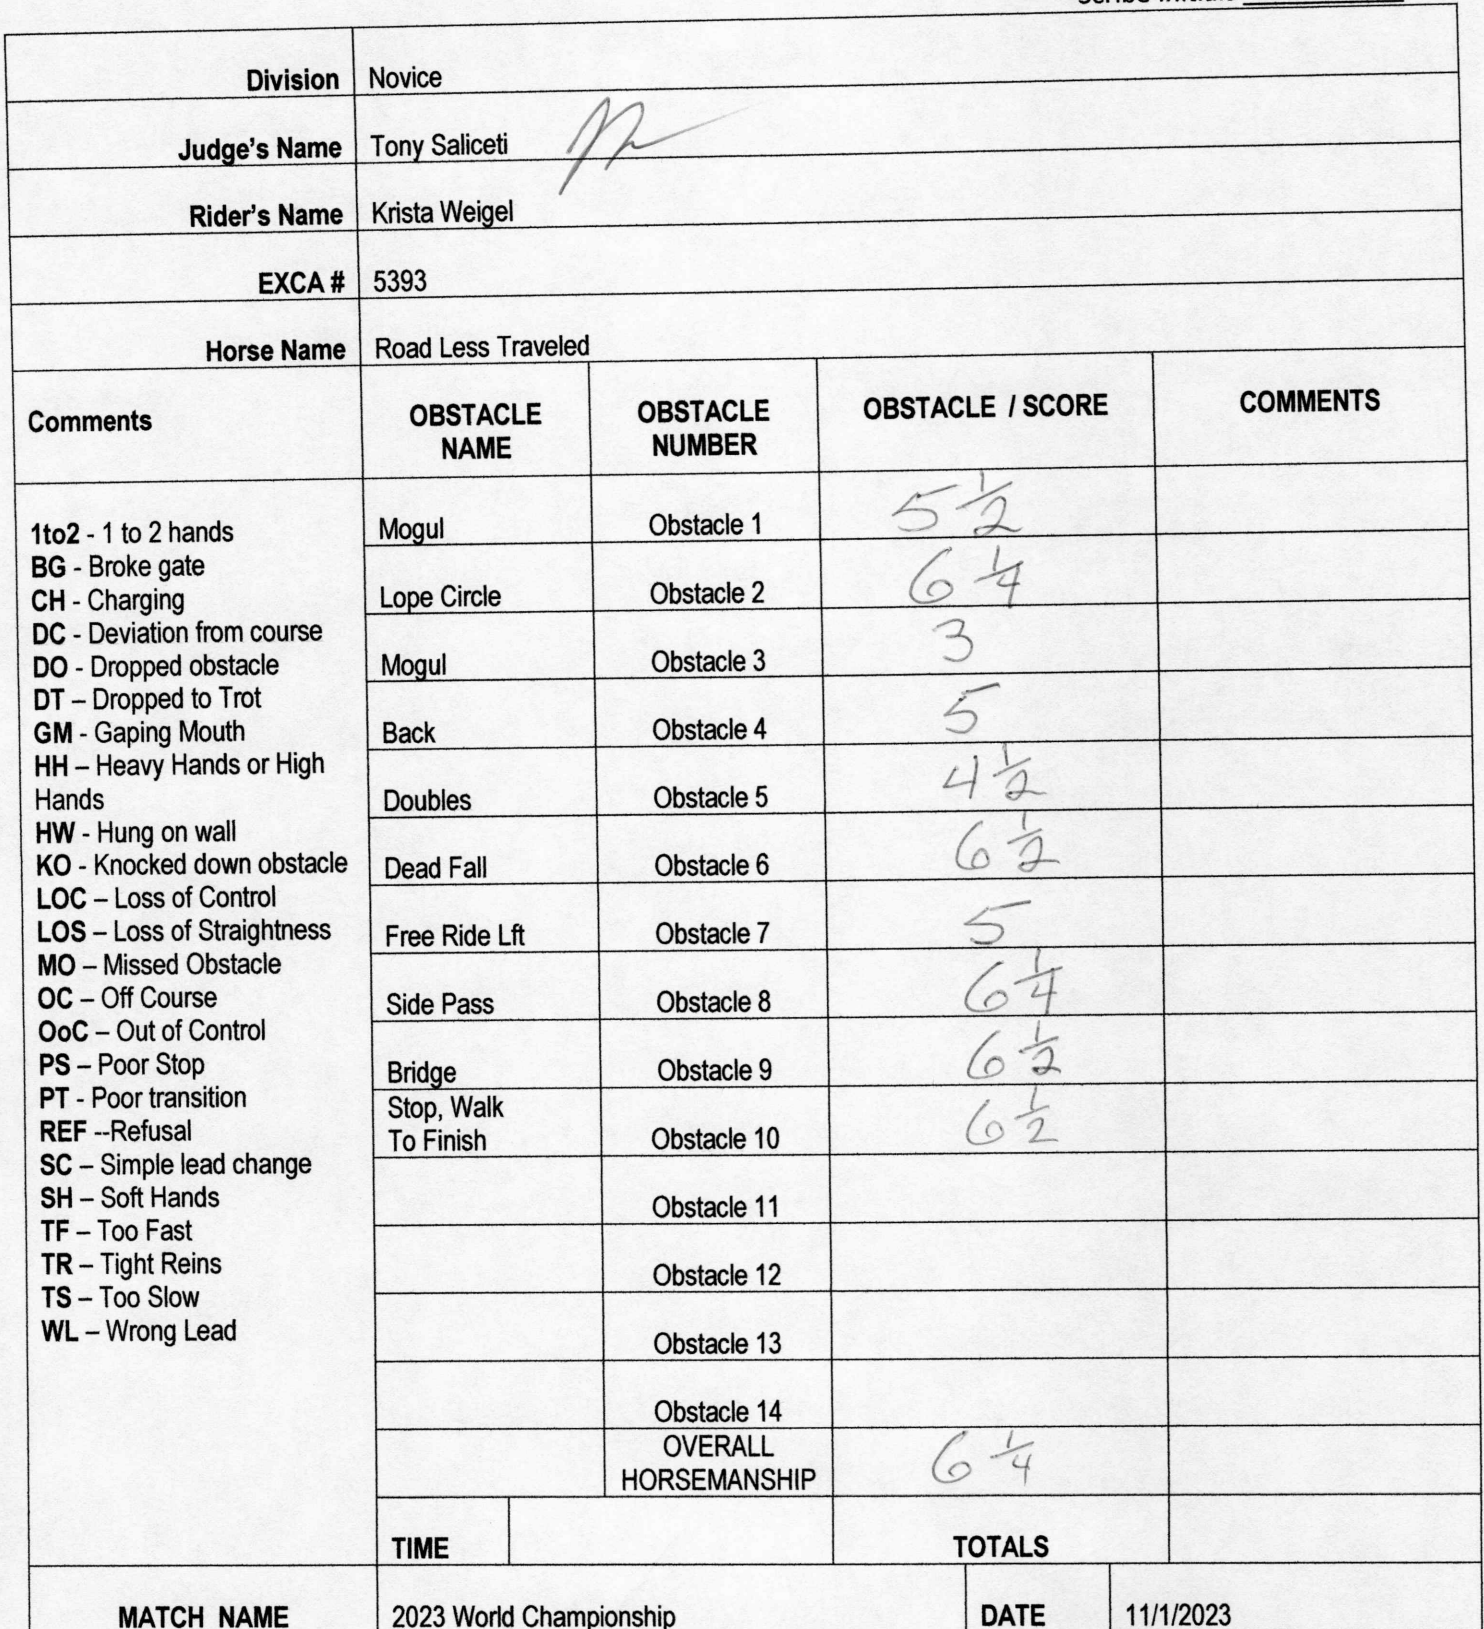 Division Novice
Judge's Name Tony Saliceti
Rider's Name Krista Weigel
EXCA # 5393
Horse Name Road Less Traveled
Comments OBSTACLE NAME OBSTACLE NUMBER OBSTACLE / SCORE COMMENTS
1to2 - 1 to 2 hands
BG - Broke gate
CH - Charging
DC - Deviation from course
DO - Dropped obstacle
DT – Dropped to Trot
GM - Gaping Mouth
HH – Heavy Hands or High
Hands
HW - Hung on wall
KO - Knocked down obstacle
LOC – Loss of Control
LOS – Loss of Straightness
MO – Missed Obstacle
OC – Off Course
OoC – Out of Control
PS – Poor Stop
PT - Poor transition
REF --Refusal
SC – Simple lead change
SH – Soft Hands
TF – Too Fast
TR – Tight Reins
TS – Too Slow
WL – Wrong Lead
Mogul Obstacle 1 5 1/2
Lope Circle Obstacle 2 6 1/4
Mogul Obstacle 3 3
Back Obstacle 4 5
Doubles Obstacle 5 4 1/2
Dead Fall Obstacle 6 6 1/2
Free Ride Lft Obstacle 7 5
Side Pass Obstacle 8 6 1/4
Bridge Obstacle 9 6 1/2
Stop, Walk
To Finish Obstacle 10 6 1/2
Obstacle 11
Obstacle 12
Obstacle 13
Obstacle 14
OVERALL
HORSEMANSHIP 6 1/4
TIME TOTALS
MATCH NAME 2023 World Championship DATE 11/1/2023